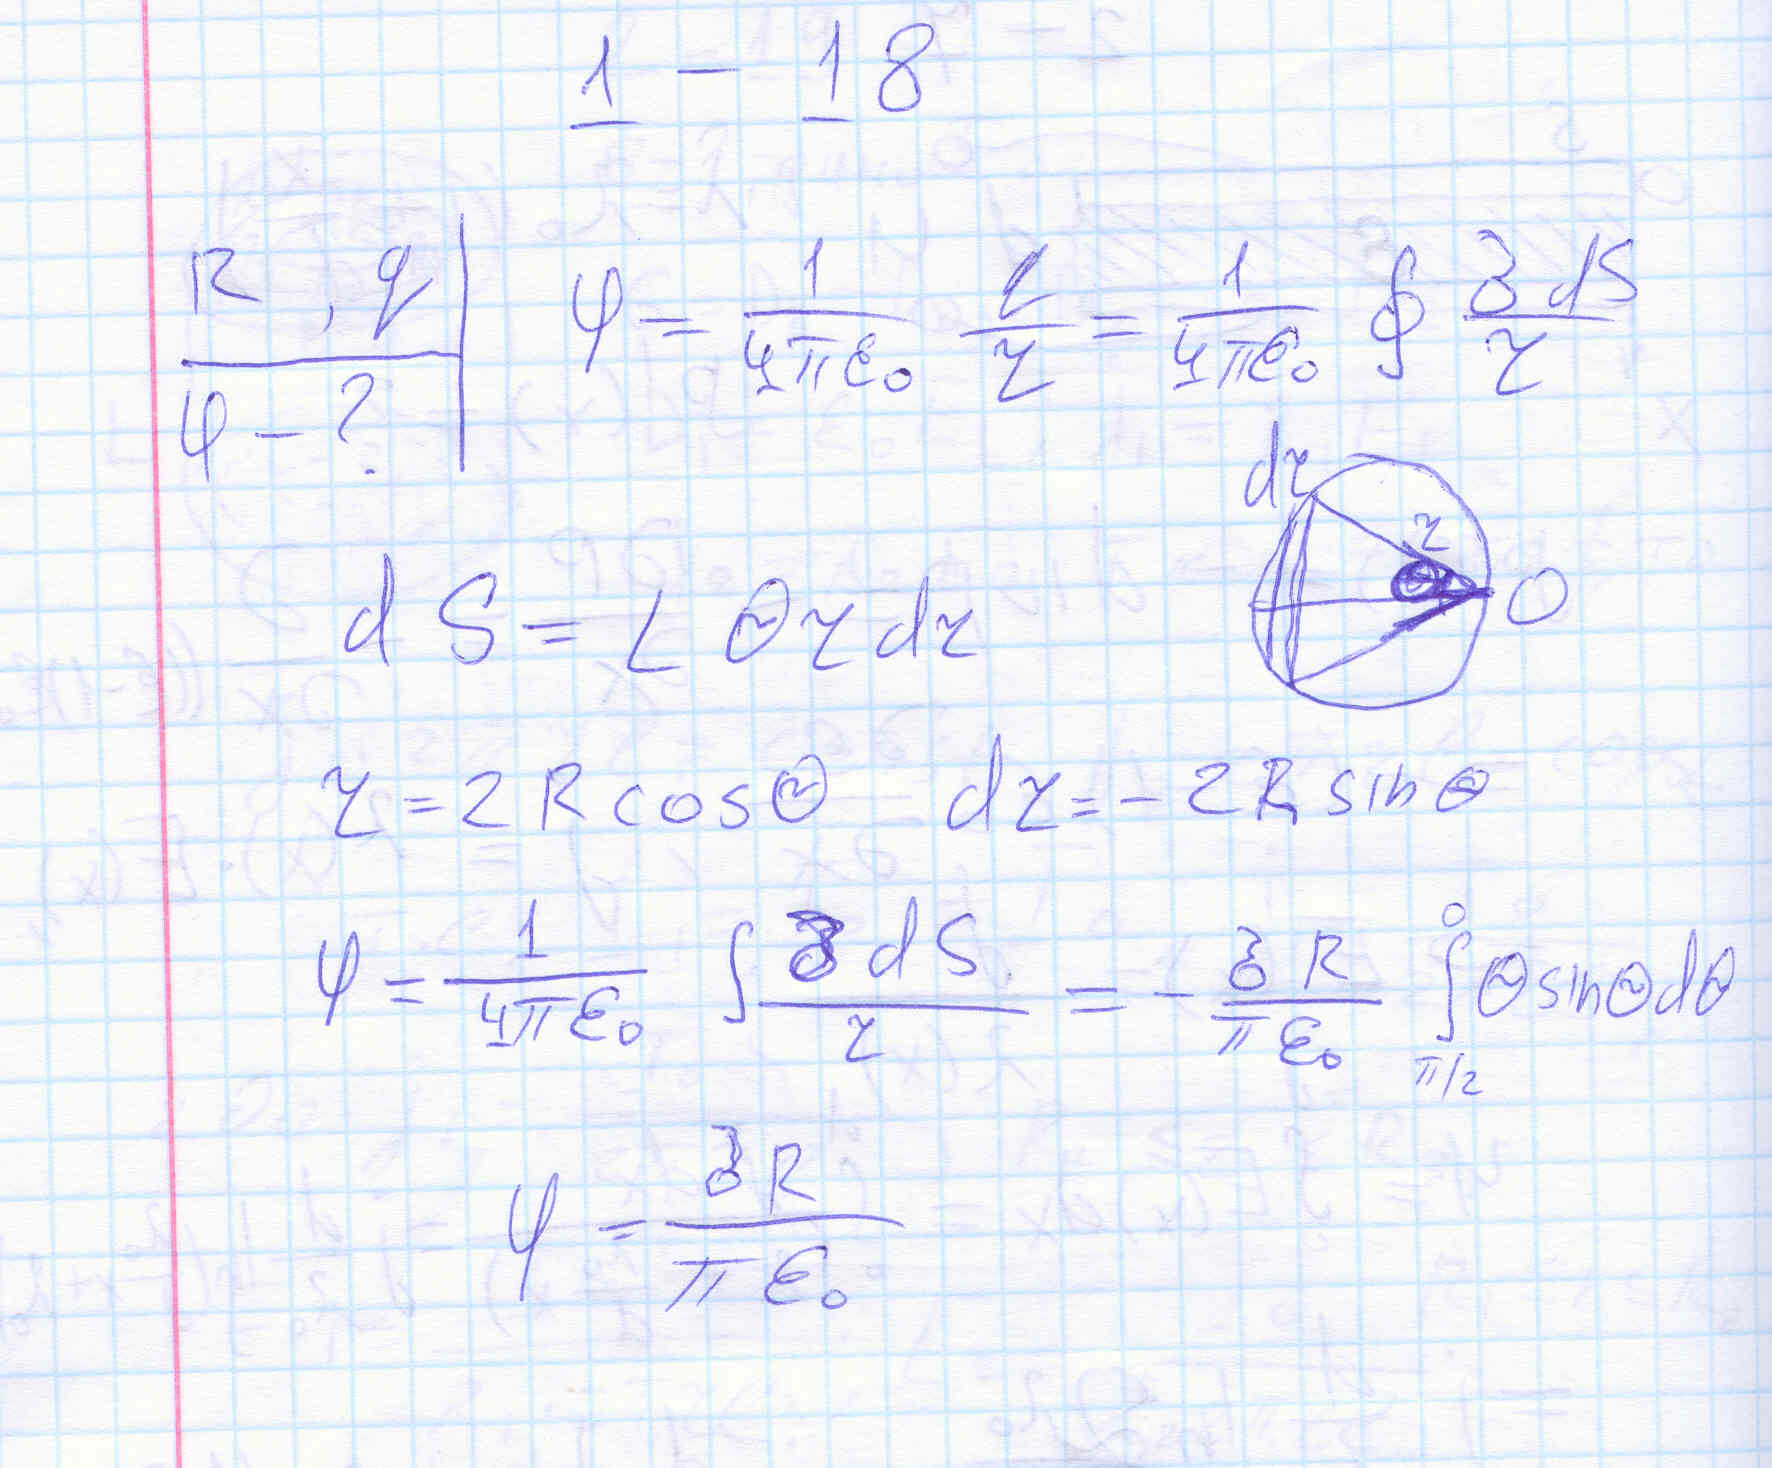 1 - 18
R, q
φ - ?
φ = 1/(4πε₀) q/r = 1/(4πε₀) ∮ σ dS/r
dr
r
θ
O
dS = 2 θ r dr
r = 2 R cosθ dr = - 2R sinθ
φ = 1/(4πε₀) ∫ σ dS/r = - σR/(πε₀) ∫_{π/2}^{0} θ sinθ dθ
φ = σR/(πε₀)